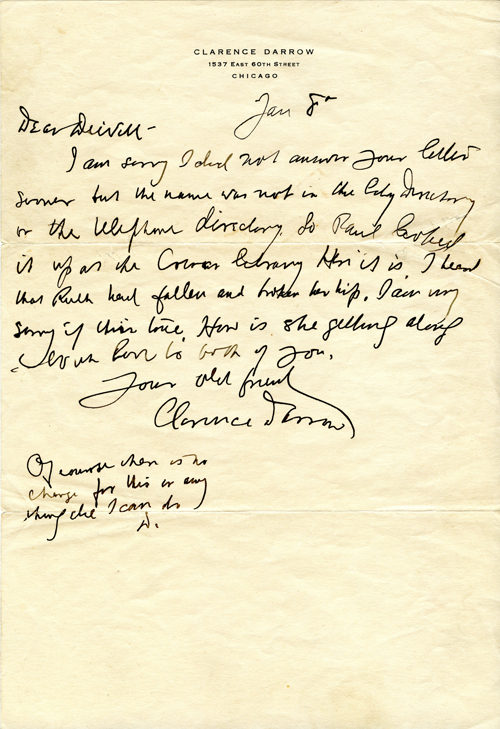 CLARENCE DARROW
1537 EAST 60TH STREET
CHICAGO
Jan 8th
Dear
I am sorry I did not answer your letter
sooner but the name was not in the City directory
or the telephone directory. So Paul looked
it up at the Crerar library Here it is. I heard
that Ruth had fallen and broken her hip. I am very
sorry if this is true. How is she getting along
With love to both of you.
Your old friend
Clarence Darrow
Of course there is no
charge for this or any
thing else I can do
D.